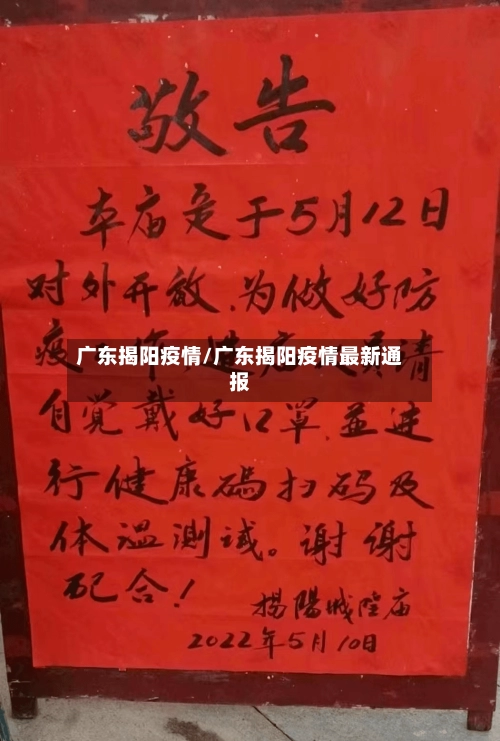 敬告
本庙定于5月12日
对外开放.为做好防
疫
广东揭阳疫情/广东揭阳疫情最新通
报
自觉戴好口罩.并进
行健康码扫码及
体温测试。谢谢
配合!
揭陽城隍庙
2022年5月10日